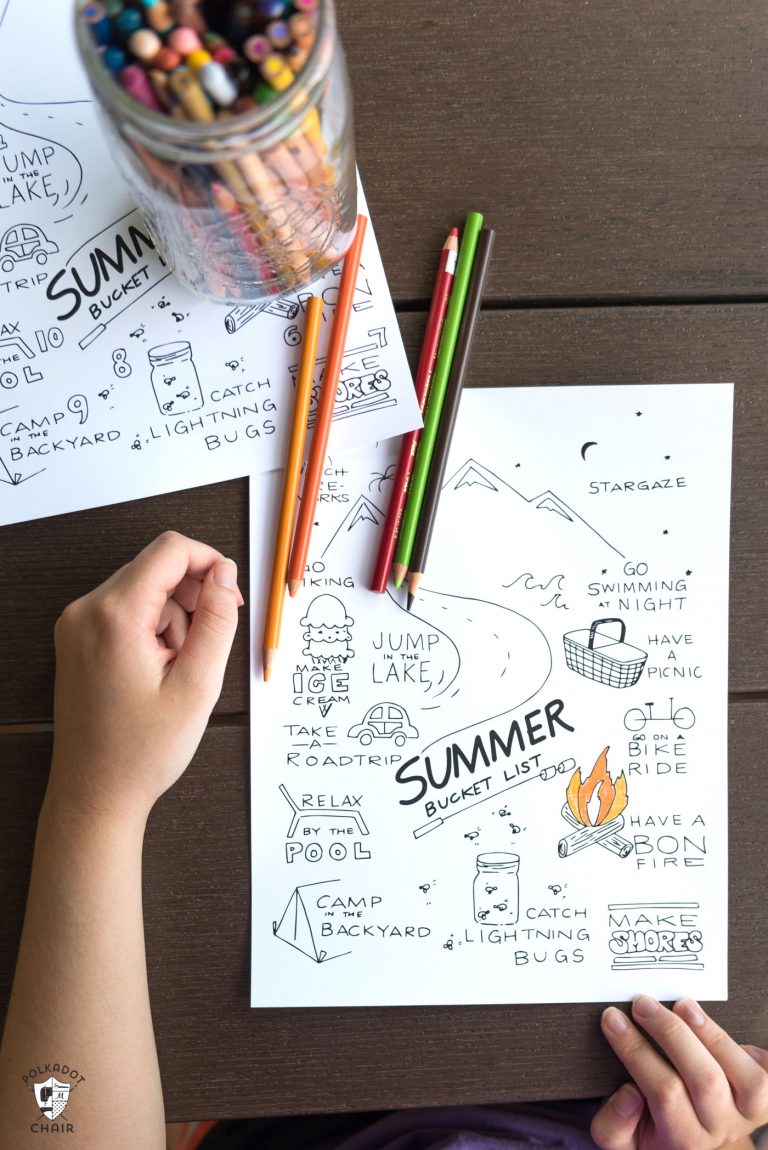 JUMP
IN THE
LAKE
TRIP
SUMM
BUCKET
RELAX
THE
POOL
10
8
6
7
BON
SMORES
9
CAMP
IN THE
BACKYARD
CATCH
LIGHTNING
BUGS
STARGAZE
GO
SWIMMING
AT NIGHT
HAVE
A
PICNIC
JUMP
IN THE
LAKE
MAKE
ICE
CREAM
TAKE
A
ROADTRIP
SUMMER
BUCKET LIST
GO ON A
BIKE
RIDE
RELAX
BY THE
POOL
HAVE A
BON
FIRE
CAMP
IN THE
BACKYARD
CATCH
LIGHTNING
BUGS
MAKE
SMORES
POLKADOT
CHAIR